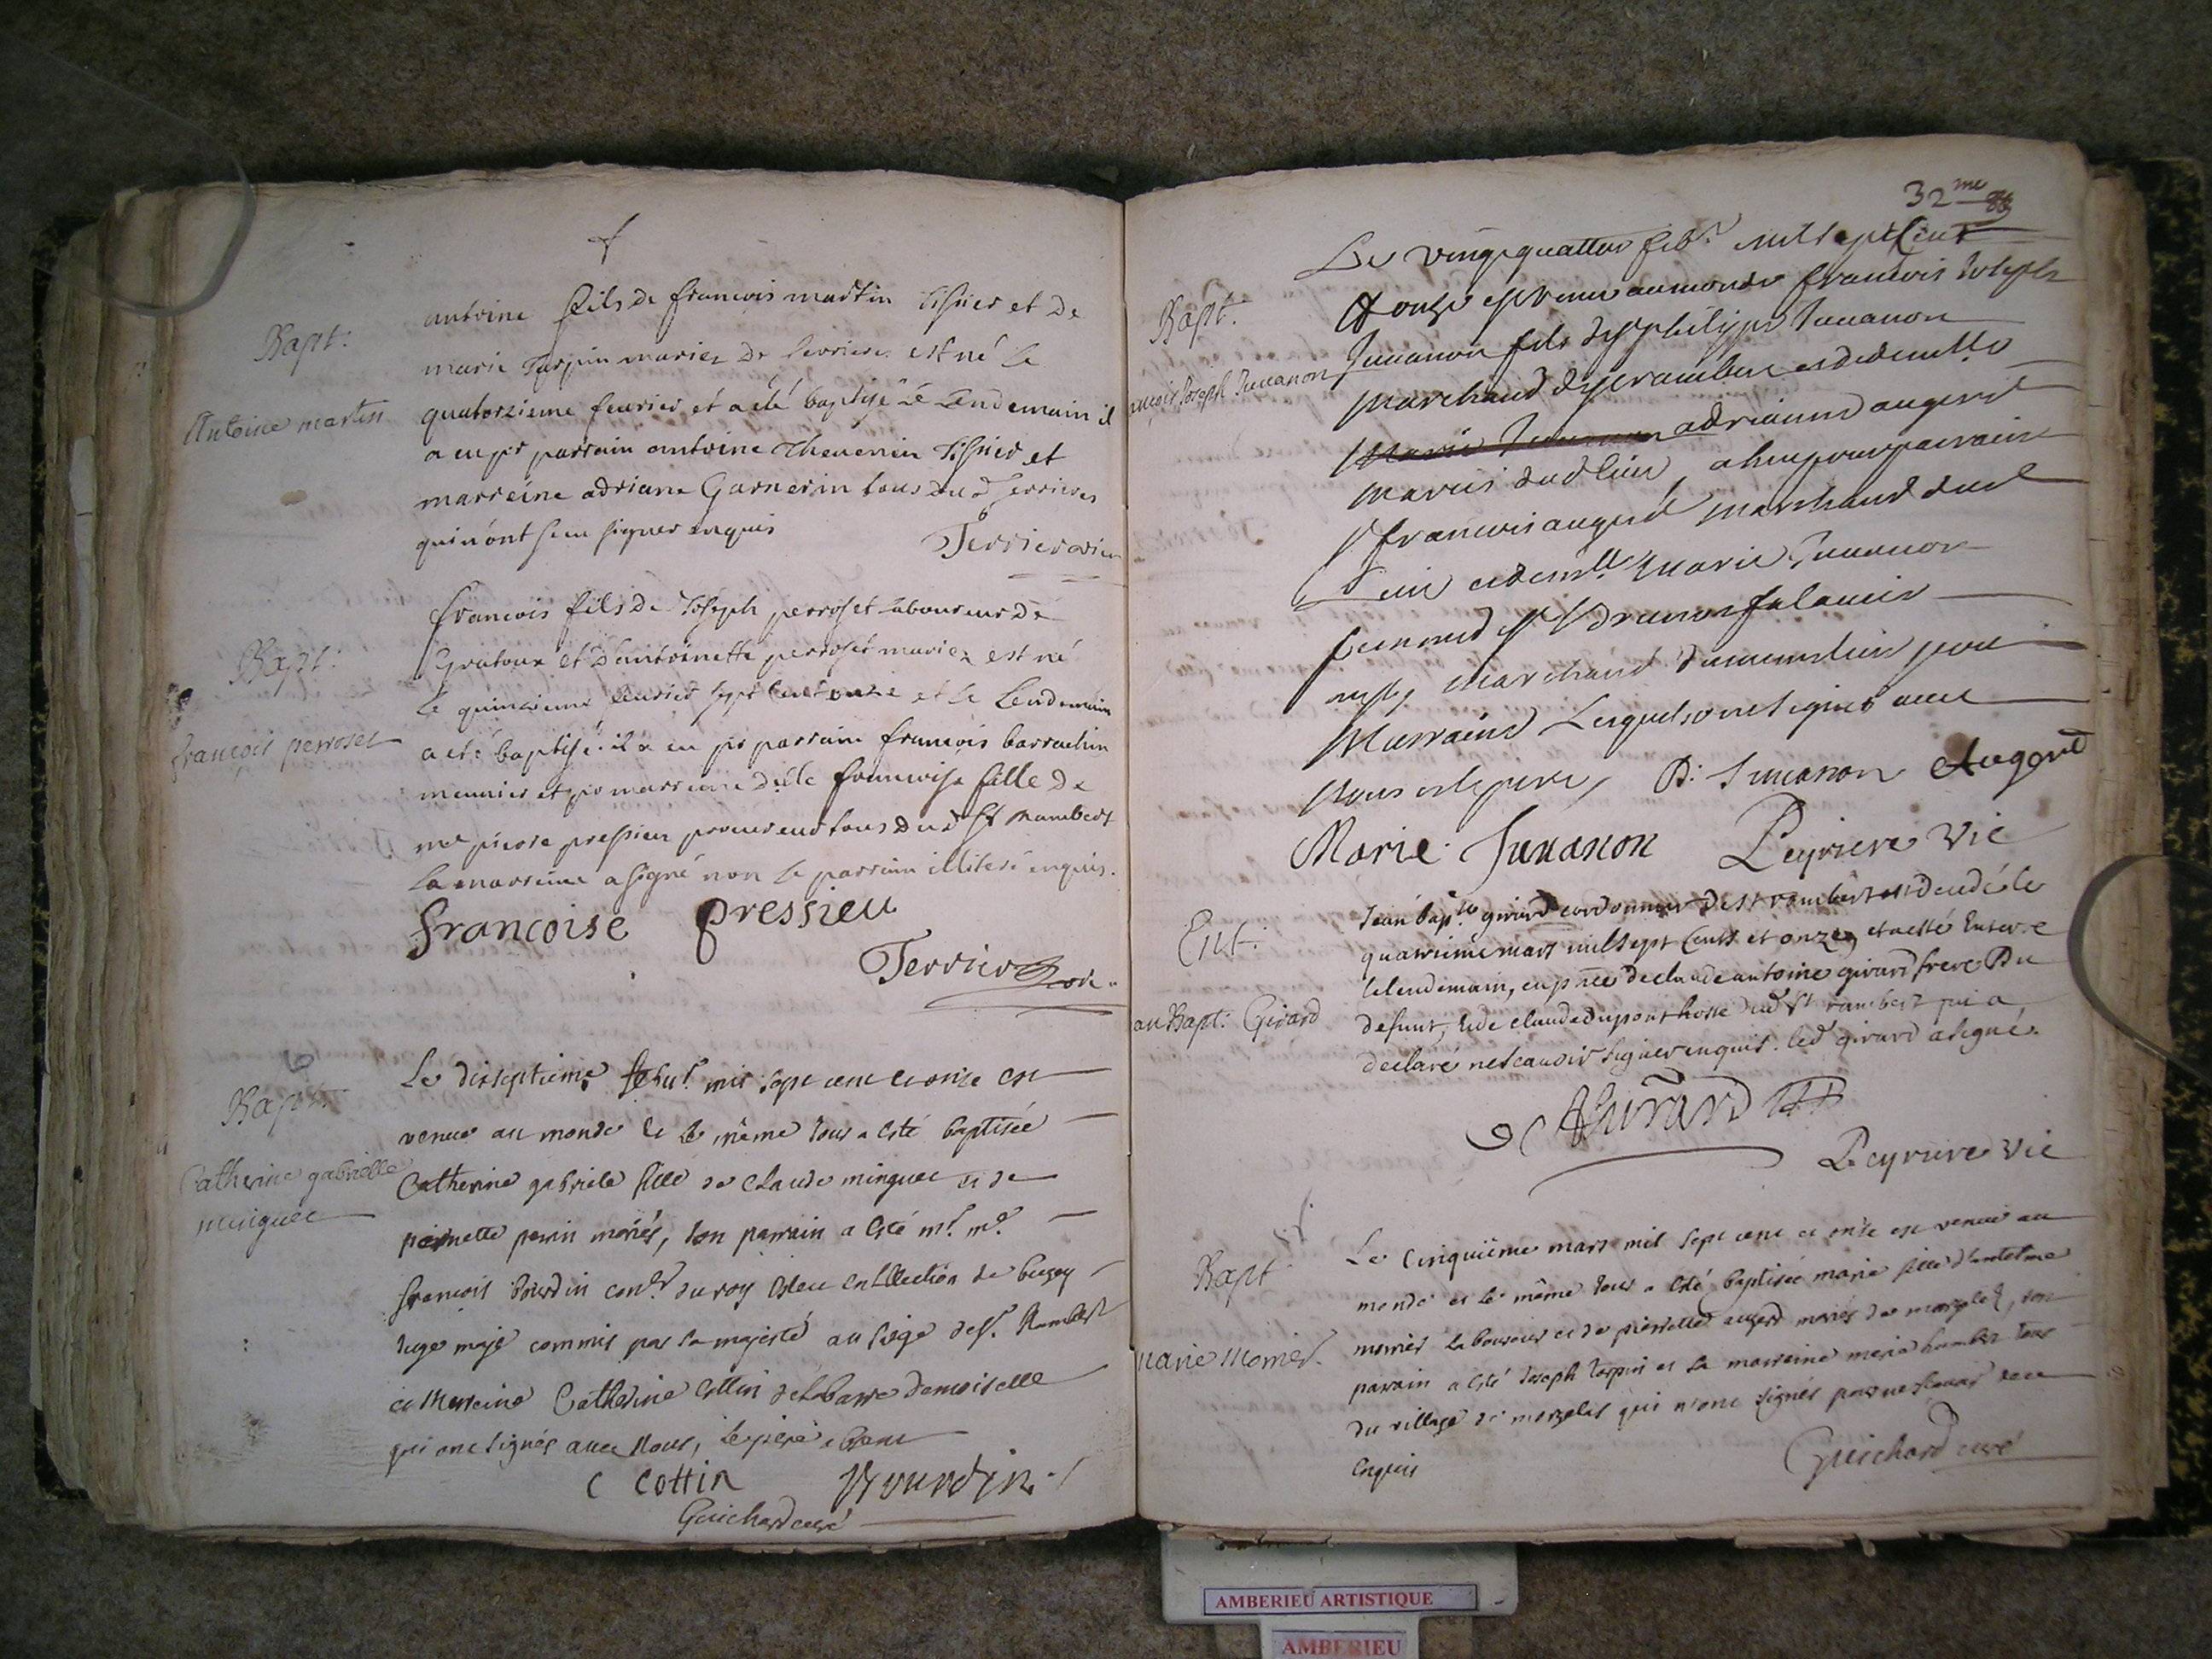 Bapt:
Antoine martin
antoine fils de francois martin tissier et de
marie Turpin mariez de serrieres est né le
quatorzieme feurier et a été baptisé Le Lendemain il
a eu pr parrain antoine Theuenin Tissier et
marreine adriane Garnerin tous dud serrieres
qui n'ont sceu signer enquis
Terrier
Bapt:
françois perroset
francois fils de Joseph perroset laboureur de
Gratoux et d'antoinette perroset mariez est né
le quinzieme feurier sept cent onze et le Lendemain
a eté baptisé. il a eu pr parrain francois barrachin
meunier et pr marreine dlle francoise fille de
me pierre pressieu procureur tous dud St Rambert
La marreine a signé non le parrain illiteré enquis.
francoise pressieu
Terrier
Bapt:
Catherine gabrielle
minguée
Le disseptieme febur. mis sept cent et onze est
venue au monde et le même Jour a esté baptisée
Catherine gabriele fille de Claude minguee et de
pernette perin mariés, son parrain a esté mr. me.
francois bourdin conr du roy esleu en Ellection de bugey
Juge maje commis par sa majesté au siege de st. Rambert
et Merreine Catherine Cottin de Labarre demoiselle
qui ont signés auec Nous, le pere absent
C Cottin Bourdin
Guichard curé
32me
Bapt.
ançois Joseph Juuanon
Le vingt quattre feb. mil sept Cent
& onze est venu au monde francois Joseph
Juuanon fils de sr philippe Juuanon
marchand de st rambert et de demlle
Marie Juuanon adrianne augerd
mariés dud lieu, a heu pour parrain
sr francois augerd marchand dud
Lieu et demlle Marie Juuanon
femme de sr
marchand du mesme lieu pour
Marraine Lesquels ont signes auec
Nous et le pere, P: Juuanon Augerd
Marie Juuanon Peyriere Vic
Ent:
an Bapt: Girard
Jean bapte girard cordonnier de st rambert est decedé le
quatrieme mars mil sept Cents et onze, et a esté Enterré
le lendemain, en pnce de claude antoine girard frere Du
defunt, et de claude dupont hoste dud st rambert qui a
declaré ne scauoir signer enquis. led girard a signé.
Girard
Peyriere Vic
Bapt
Marie Momier.
Le Cinquiéme mars mil sept cent et onze est venue au
monde et le même Jour a esté baptisée marie fille d'antelme
momier Laboureur et de pierrette augerd mariés de morgelas, son
parrain a esté Joseph Turpin et la marreine marie humber tous
du village de morgelas qui n'ont signés pour ne scauoir de ce
Enquis
Guichard curé
AMBERIEU ARTISTIQUE
AMBERIEU